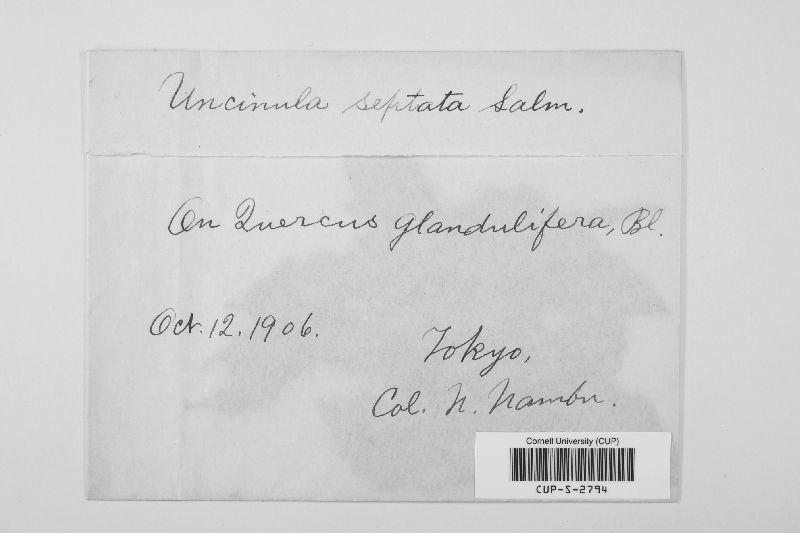 Uncinula septata Salm.
On Quercus glandulifera, Bl.
Oct. 12. 1906.
Tokyo,
Col. N. Nambu.
Cornell University (CUP)
CUP-S-2794